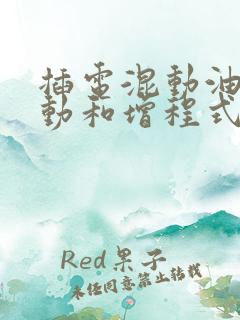 插電混動油
動和增程式
Red果子
未经同意禁止转载